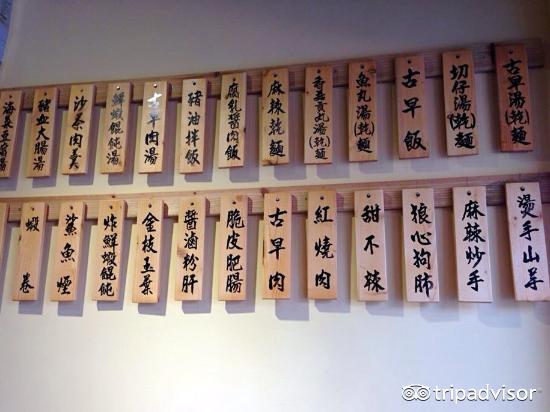 古早湯(乾)麵
切仔湯(乾)麵
古早飯
魚丸湯(乾)麵
香菇貢丸湯(乾)麵
麻辣乾麵
腐乳醬肉飯
豬油拌飯
古早肉湯
鮮蝦餛飩湯
沙茶肉羹
豬血大腸湯
海菜豆腐湯
燙手山芋
麻辣炒手
狼心狗肺
甜不辣
紅燒肉
古早肉
脆皮肥腸
醬滷粉肝
金枝玉葉
炸鮮蝦餛飩
鯊魚煙
蝦卷
tripadvisor